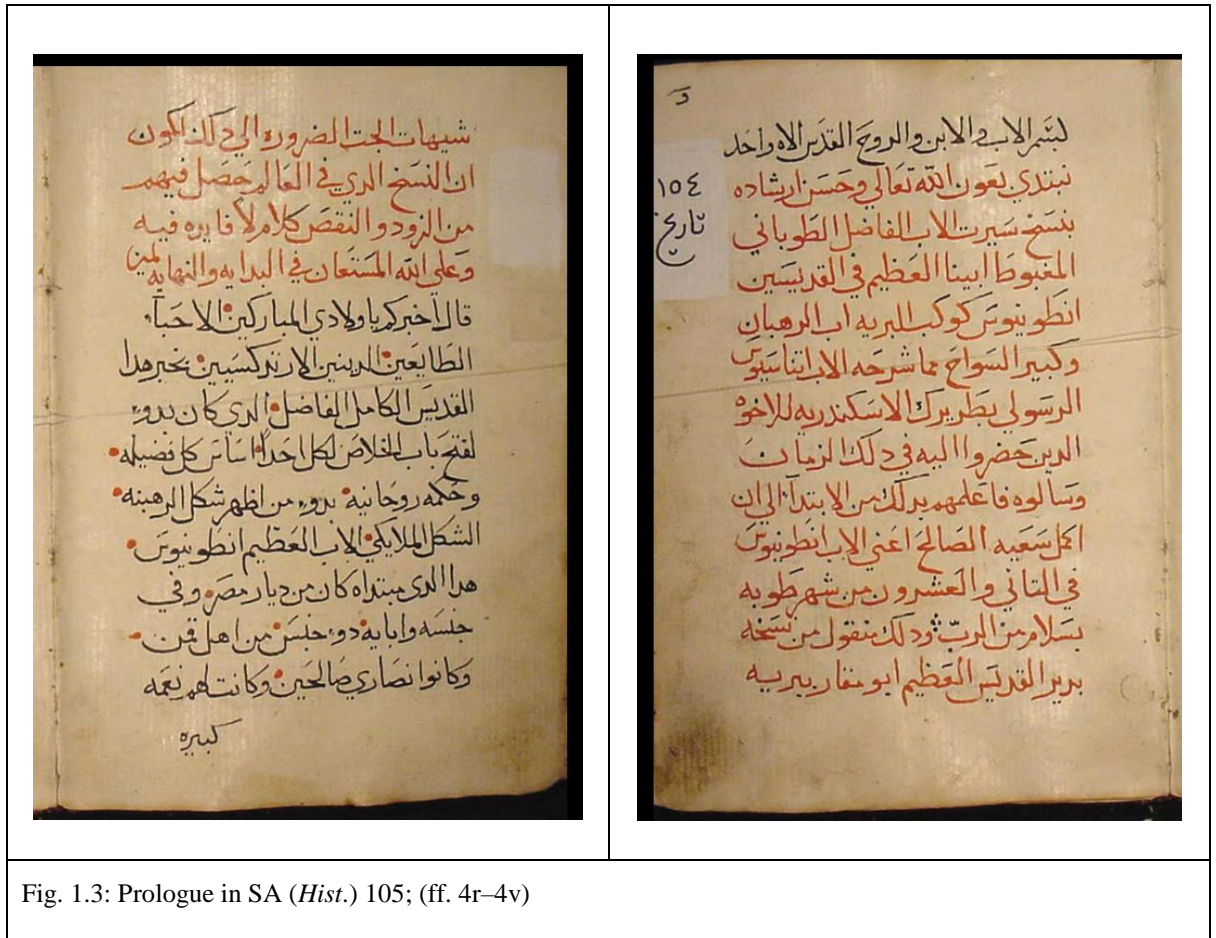 ١٥٤
تاريخ
بسم الاب والابن والروح القدس الاه واحد
نبتدي بعون الله تعالي وحسن ارشاده
بنسخ سيرت الاب الفاضل الطوباني
المغبوط ابينا العظيم في القديسين
انطونيوس كوكب البريه اب الرهبان
وكبير السواح مما شرحه الاب اتناسيوس
الرسولي بطريرك الاسكندريه للاخوه
الدين حضروا اليه في دلك الزمان
وسالوه فاعلمهم بدلك من الابتدا الي ان
اكمل سعيه الصالح اعني الاب انطونيوس
في التاني والعشرون من شهر طوبه
بسلام من الرب ودلك منقول من نسخه
بدير القديس العظيم ابو مقار ببريه
شيهات الجت الضروره الي دلك لكون
ان النسخ الدي في العالم حصل فيهم
من الزود والنقص كلام لا فايده فيه
وعلي الله المستعان في البدايه والنهايه امين
قال اخبركم يا ولادي المباركين الاحبا
الطايعين الدينين الارتدكسيين بخبر هدا
القديس الكامل الفاضل الدي كان بدو
لفتح باب الخلاص لكل احد اساس كل فضيله
وحكمه روحانيه بدو من اظهر شكل الرهبنه
الشكل الملايكي الاب العظيم انطونيوس
هدا الدي مبتداه كان من ديار مصر وفي
جنسه وابايه دو جنس من اهل قمن
وكانوا نصاري صالحين وكانت لهم نعمه
كبيره
Fig. 1.3: Prologue in SA (Hist.) 105; (ff. 4r–4v)